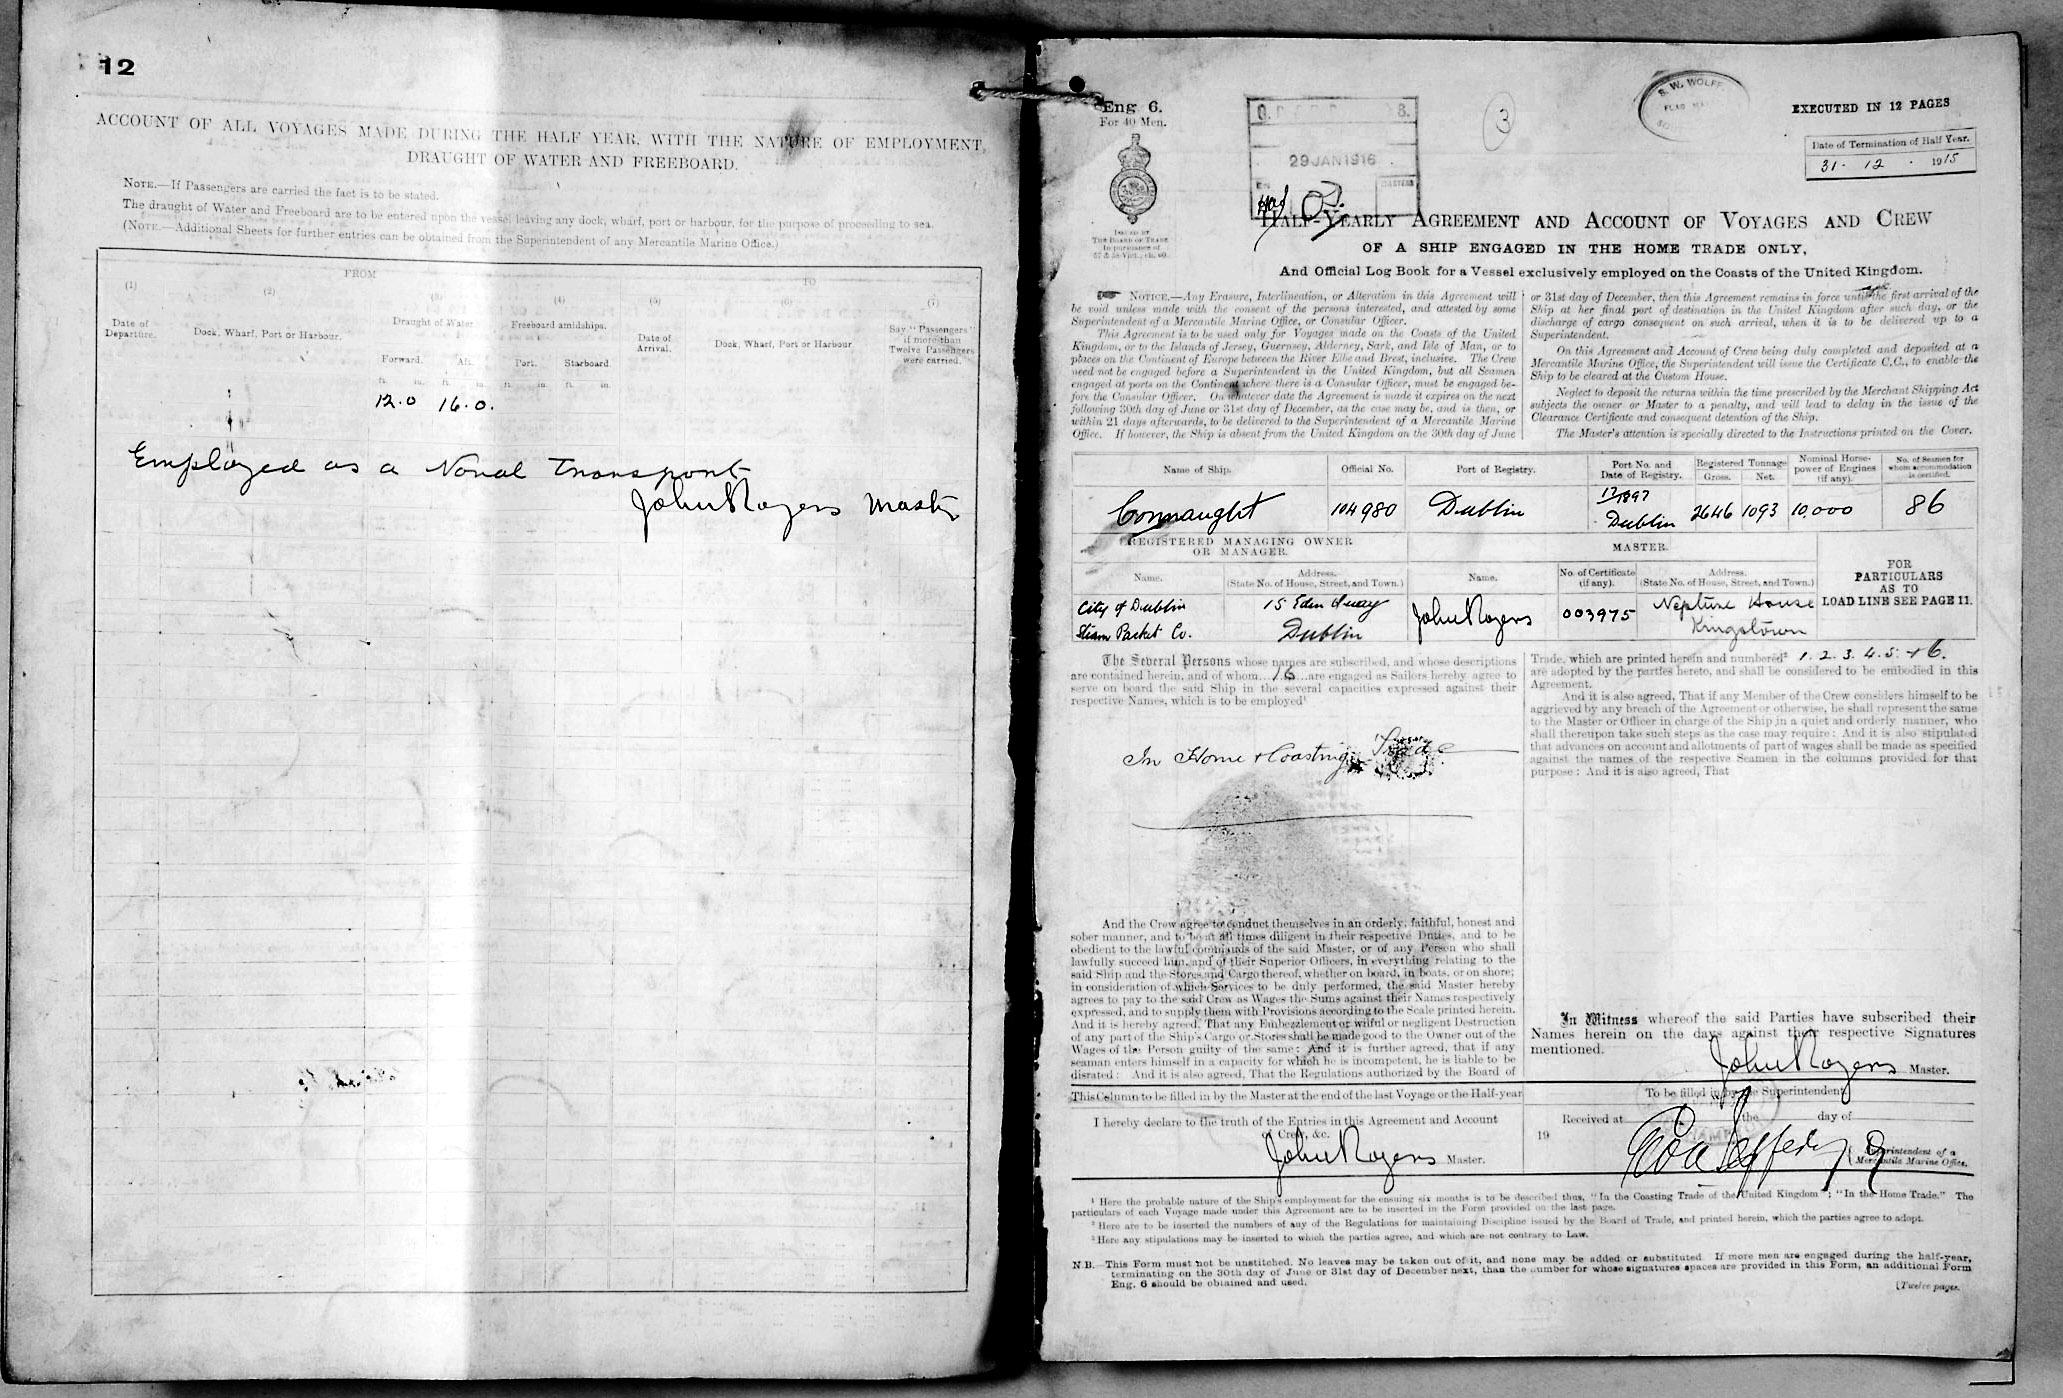 12
ACCOUNT OF ALL VOYAGES MADE DURING THE HALF YEAR, WITH THE NATURE OF EMPLOYMENT,
DRAUGHT OF WATER AND FREEBOARD.
NOTE.—If Passengers are carried the fact is to be stated.
The draught of Water and Freeboard are to be entered upon the vessel leaving any dock, wharf, port or harbour, for the purpose of proceeding to sea.
(NOTE.—Additional Sheets for further entries can be obtained from the Superintendent of any Mercantile Marine Office.)
FROM
TO
(1) (2) (3) (4) (5) (6) (7)
Date of Departure.
Dock, Wharf, Port or Harbour.
Draught of Water
Forward. Aft.
Freeboard amidships.
Port. Starboard.
Date of Arrival.
Dock, Wharf, Port or Harbour
Say "Passengers" if more than Twelve Passengers were carried.
ft. in. ft. in. ft. in. ft. in.
12.0 16.0.
Employed as a Naval Transport
John Rogers Master
Eng 6.
For 40 Men.
29 JAN 1916
3
S. W. WOLFE
EXECUTED IN 12 PAGES
Date of Termination of Half Year.
31 . 12 . 1915
ISSUED BY
THE BOARD OF TRADE
In pursuance of
57 & 58 Vict., ch. 60.
HALF-YEARLY AGREEMENT AND ACCOUNT OF VOYAGES AND CREW
OF A SHIP ENGAGED IN THE HOME TRADE ONLY,
And Official Log Book for a Vessel exclusively employed on the Coasts of the United Kingdom.
NOTICE.—Any Erasure, Interlineation, or Alteration in this Agreement will
be void unless made with the consent of the persons interested, and attested by some
Superintendent of a Mercantile Marine Office, or Consular Officer.
This Agreement is to be used only for Voyages made on the Coasts of the United
Kingdom, or to the Islands of Jersey, Guernsey, Alderney, Sark, and Isle of Man, or to
places on the Continent of Europe between the River Elbe and Brest, inclusive. The Crew
need not be engaged before a Superintendent in the United Kingdom, but all Seamen
engaged at ports on the Continent where there is a Consular Officer, must be engaged be-
fore the Consular Officer. On whatever date the Agreement is made it expires on the next
following 30th day of June or 31st day of December, as the case may be, and is then, or
within 21 days afterwards, to be delivered to the Superintendent of a Mercantile Marine
Office. If however, the Ship is absent from the United Kingdom on the 30th day of June
or 31st day of December, then this Agreement remains in force until the first arrival of the
Ship at her final port of destination in the United Kingdom after such day, or the
discharge of cargo consequent on such arrival, when it is to be delivered up to a
Superintendent.
On this Agreement and Account of Crew being duly completed and deposited at a
Mercantile Marine Office, the Superintendent will issue the Certificate C.C., to enable the
Ship to be cleared at the Custom House.
Neglect to deposit the returns within the time prescribed by the Merchant Shipping Act
subjects the owner or Master to a penalty, and will lead to delay in the issue of the
Clearance Certificate and consequent detention of the Ship.
The Master's attention is specially directed to the Instructions printed on the Cover.
Name of Ship. Official No. Port of Registry. Port No. and Date of Registry. Registered Tonnage Gross. Net. Nominal Horse-power of Engines (if any). No. of Seamen for whom accommodation is certified.
Connaught 104980 Dublin 17/1897 Dublin 2646 1093 10,000 86
REGISTERED MANAGING OWNER
OR MANAGER.
MASTER.
Name. Address. (State No. of House, Street, and Town.) Name. No. of Certificate (if any). Address. (State No. of House, Street, and Town.)
FOR
PARTICULARS
AS TO
LOAD LINE SEE PAGE 11.
City of Dublin 15 Eden Quay John Rogers 003975 Neptune House
Steam Packet Co. Dublin Kingstown
The Several Persons whose names are subscribed, and whose descriptions
are contained herein, and of whom 16 are engaged as Sailors hereby agree to
serve on board the said Ship in the several capacities expressed against their
respective Names, which is to be employed¹
In Home & Coasting Trade
And the Crew agree to conduct themselves in an orderly, faithful, honest and
sober manner, and to be at all times diligent in their respective Duties, and to be
obedient to the lawful commands of the said Master, or of any Person who shall
lawfully succeed him, and of their Superior Officers, in everything relating to the
said Ship and the Stores and Cargo thereof, whether on board, in boats, or on shore;
in consideration of which Services to be duly performed, the said Master hereby
agrees to pay to the said Crew as Wages the Sums against their Names respectively
expressed, and to supply them with Provisions according to the Scale printed herein.
And it is hereby agreed, That any Embezzlement or wilful or negligent Destruction
of any part of the Ship's Cargo or Stores shall be made good to the Owner out of the
Wages of the Person guilty of the same: And it is further agreed, that if any
seaman enters himself in a capacity for which he is incompetent, he is liable to be
disrated: And it is also agreed, That the Regulations authorized by the Board of
Trade, which are printed herein and numbered² 1. 2. 3. 4. 5. + 6.
are adopted by the parties hereto, and shall be considered to be embodied in this
Agreement.
And it is also agreed, That if any Member of the Crew considers himself to be
aggrieved by any breach of the Agreement or otherwise, he shall represent the same
to the Master or Officer in charge of the Ship in a quiet and orderly manner, who
shall thereupon take such steps as the case may require: And it is also stipulated
that advances on account and allotments of part of wages shall be made as specified
against the names of the respective Seamen in the columns provided for that
purpose: And it is also agreed, That
In Witness whereof the said Parties have subscribed their
Names herein on the days against their respective Signatures
mentioned.
John Rogers Master.
This Column to be filled in by the Master at the end of the last Voyage or the Half-year
I hereby declare to the truth of the Entries in this Agreement and Account
of Crew, &c.
John Rogers Master.
To be filled in by the Superintendent
Received at the day of
19
Superintendent of a
Mercantile Marine Office.
¹ Here the probable nature of the Ship's employment for the ensuing six months is to be described thus, "In the Coasting Trade of the United Kingdom"; "In the Home Trade." The
particulars of each Voyage made under this Agreement are to be inserted in the Form provided on the last page.
² Here are to be inserted the numbers of any of the Regulations for maintaining Discipline issued by the Board of Trade, and printed herein, which the parties agree to adopt.
³ Here any stipulations may be inserted to which the parties agree, and which are not contrary to Law.
N.B.—This Form must not be unstitched. No leaves may be taken out of it, and none may be added or substituted. If more men are engaged during the half-year,
terminating on the 30th day of June or 31st day of December next, than the number for whose signatures spaces are provided in this Form, an additional Form
Eng. 6 should be obtained and used.
(Twelve pages.